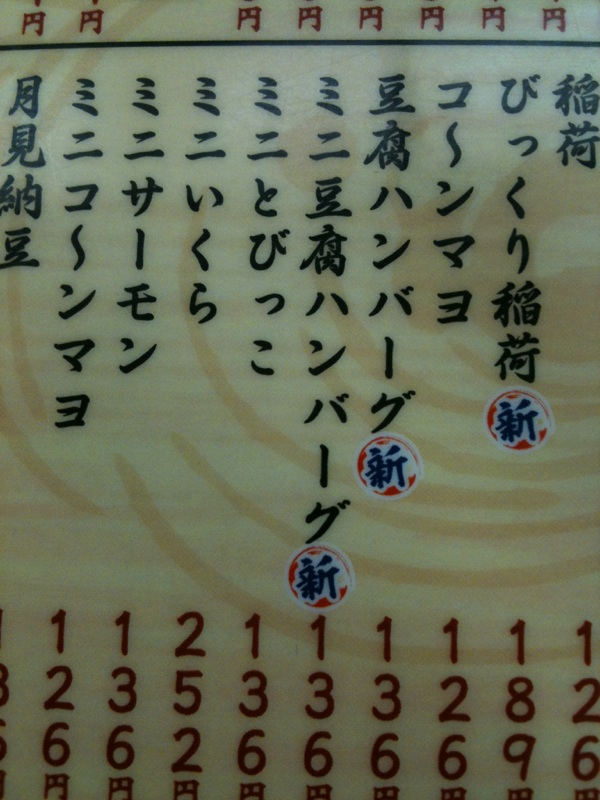 円 円 円 円 円 円 円 円
稲荷 126円
びっくり稲荷 新 189円
コ〜ンマヨ 126円
豆腐ハンバーグ 新 136円
ミニ豆腐ハンバーグ 新 136円
ミニとびっこ 136円
ミニいくら 252円
ミニサーモン 136円
ミニコ〜ンマヨ 126円
月見納豆